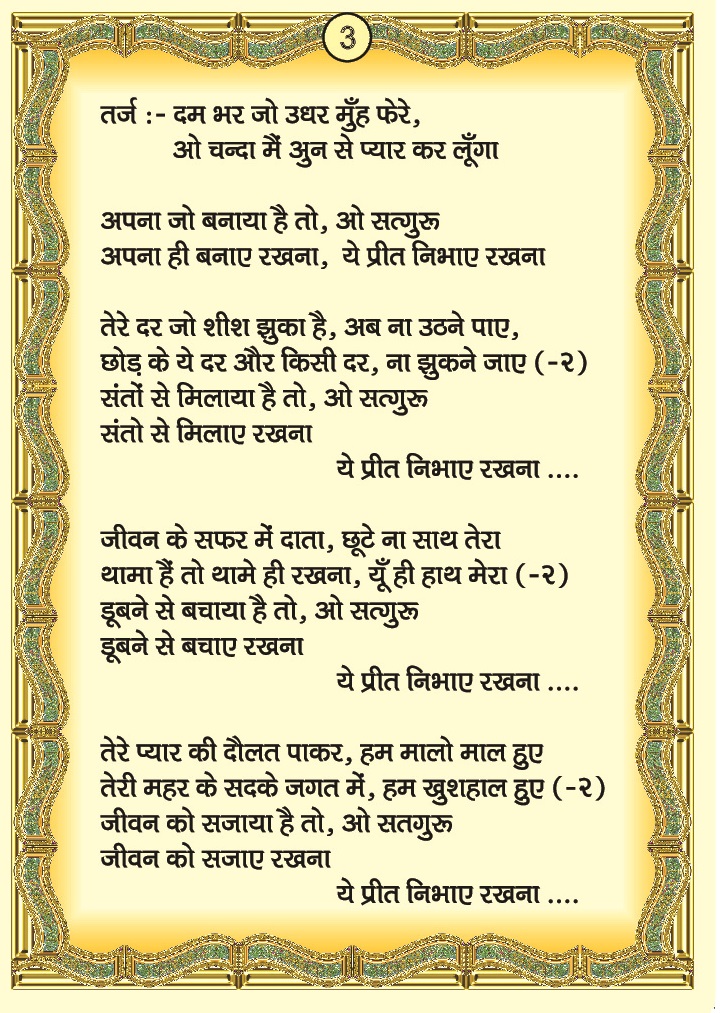 3
तर्ज :- दम भर जो उधर मुँह फेरे,
ओ चन्दा मैं अुन से प्यार कर लूँगा
अपना जो बनाया है तो, ओ सत्गुरू
अपना ही बनाए रखना, ये प्रीत निभाए रखना
तेरे दर जो शीश झुका है, अब ना उठने पाए,
छोड़ के ये दर और किसी दर, ना झुकने जाए (-२)
संतों से मिलाया है तो, ओ सत्गुरू
संतो से मिलाए रखना
ये प्रीत निभाए रखना ....
जीवन के सफर में दाता, छूटे ना साथ तेरा
थामा हैं तो थामे ही रखना, यूँ ही हाथ मेरा (-२)
डूबने से बचाया है तो, ओ सत्गुरू
डूबने से बचाए रखना
ये प्रीत निभाए रखना ....
तेरे प्यार की दौलत पाकर, हम मालो माल हुए
तेरी महर के सदके जगत में, हम खुशहाल हुए (-२)
जीवन को सजाया है तो, ओ सतगुरू
जीवन को सजाए रखना
ये प्रीत निभाए रखना ....